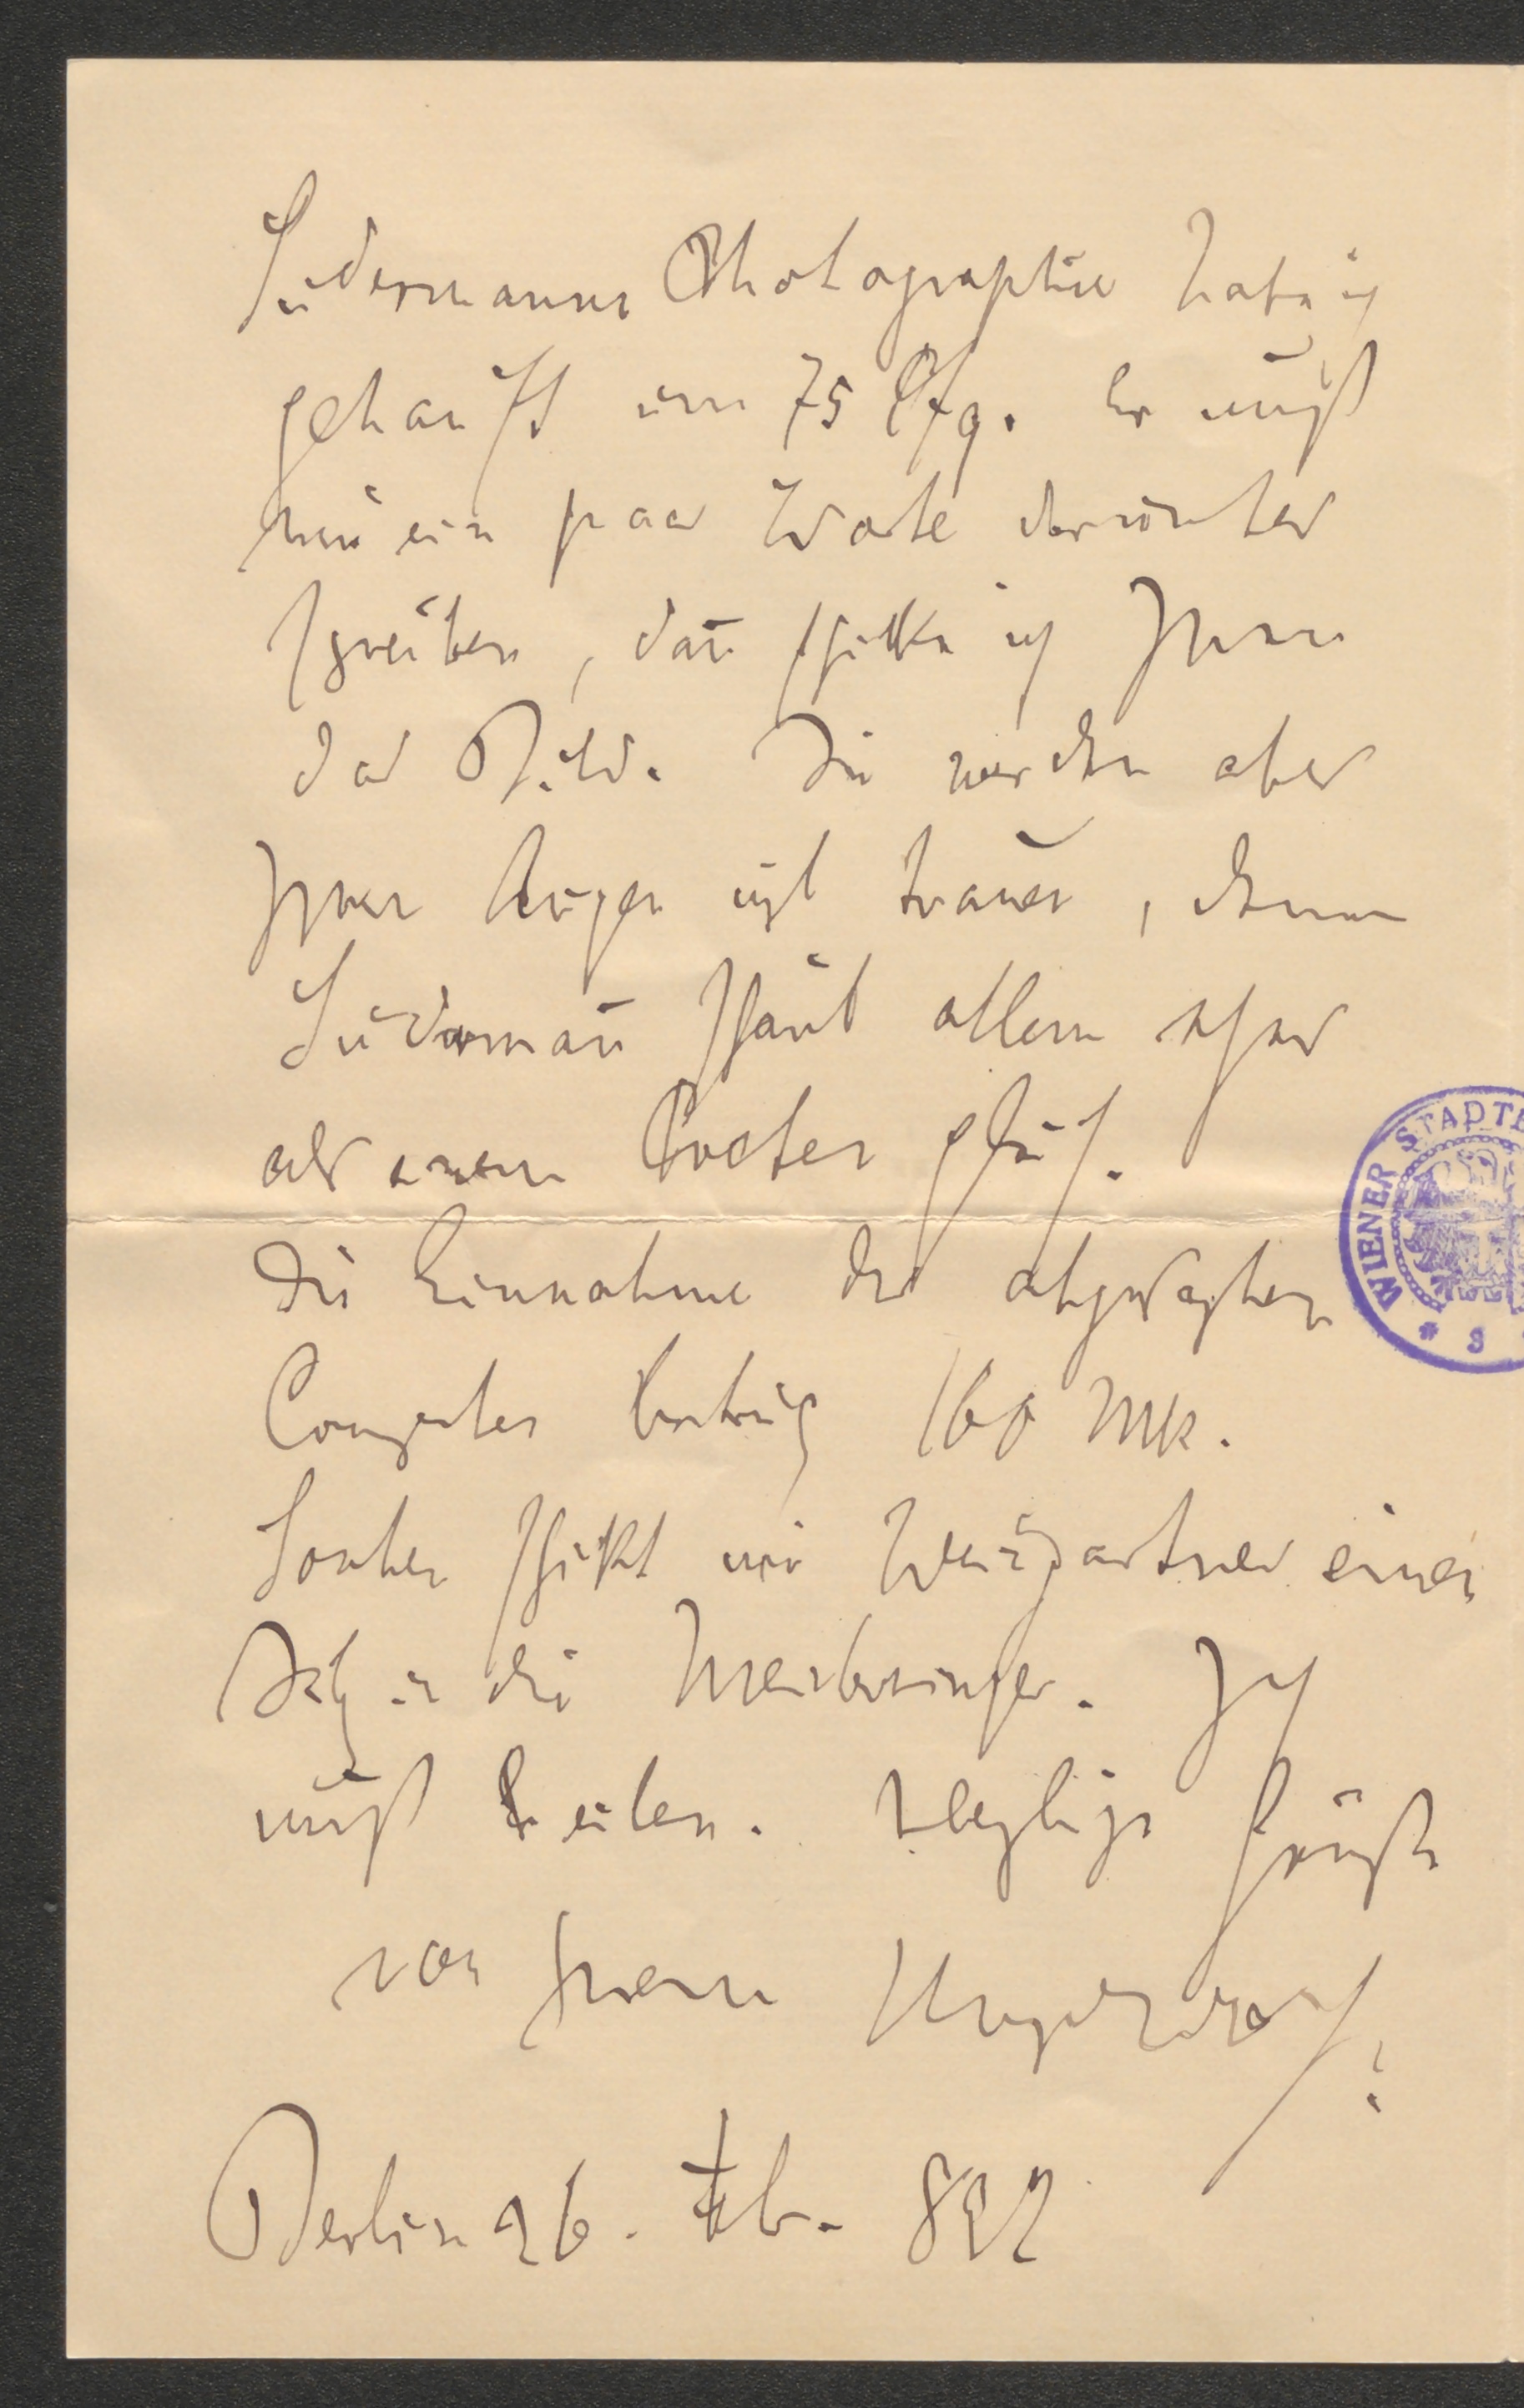 Sudermanns Photographie habe ich
gekauft um 75 Pfg. Er muß
nur ein paar Worte darunter
schreiben, dañ schicke ich Ihnen
das Bild. Sie werden aber
Ihren Augen nicht trauen, denn
Sudermañ schaut allem eher
als einem Poeten gleich.
Die Einnahme des abgesagten
Conzertes betrug 160 Mk.
Soeben schickt mir Weingartner einen
Sitz in die Meistersinger. Ich
muß eilen. Herzliche Grüße
von Ihrem
Berlin 26. Feb. 892
WIENER STADT